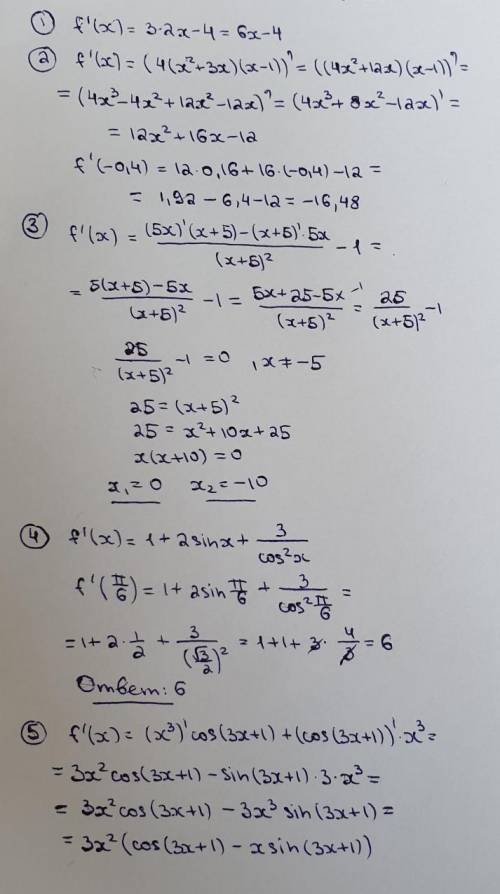 ① f'(x) = 3·2x-4 = 6x-4
② f'(x) = (4(x²+3x)(x-1))' = ((4x²+12x)(x-1))' =
= (4x³-4x²+12x²-12x)' = (4x³+8x²-12x)' =
= 12x²+16x-12
f'(-0,4) = 12·0,16+16·(-0,4)-12 =
= 1,92-6,4-12 = -16,48
③ f'(x) = ((5x)'(x+5)-(x+5)'·5x)/(x+5)² - 1 =
= (5(x+5)-5x)/(x+5)² - 1 = (5x+25-5x)/(x+5)² -1 = 25/(x+5)² -1
25/(x+5)² -1 = 0 , x ≠ -5
25 = (x+5)²
25 = x²+10x+25
x(x+10) = 0
x₁ = 0 x₂ = -10
④ f'(x) = 1+2sinx + 3/cos²x
f'(π/6) = 1+2sin π/6 + 3/cos² π/6 =
= 1+2·1/2 + 3/(√3/2)² = 1+1+3·4/3 = 6
Ответ: 6
⑤ f'(x) = (x³)'cos(3x+1)+(cos(3x+1))'·x³ =
= 3x²cos(3x+1) - sin(3x+1)·3·x³ =
= 3x²cos(3x+1) - 3x³sin(3x+1) =
= 3x²(cos(3x+1) - xsin(3x+1))